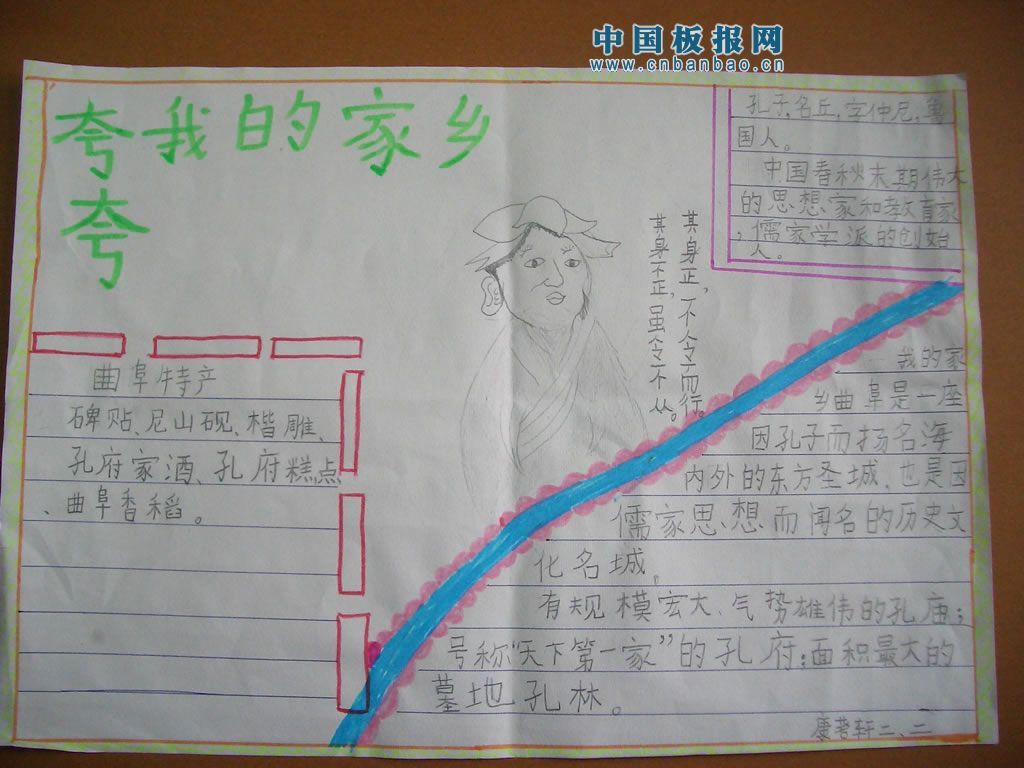 中国板报网
www.cnbanbao.cn
夸我的家乡
夸
孔子,名丘,字仲尼,鲁
国人。
中国春秋末期伟大
的思想家和教育家
,儒家学派的创始
人。
其身正,不令而行。
其身不正,虽令不从。
曲阜特产
碑贴、尼山砚、楷雕、
孔府家酒、孔府糕点
、曲阜香稻。
我的家
乡曲阜是一座
因孔子而扬名海
内外的东方圣城,也是因
儒家思想而闻名的历史文
化名城,
有规模宏大、气势雄伟的孔庙;
号称“天下第一家”的孔府;面积最大的
墓地孔林。
康 轩二、二